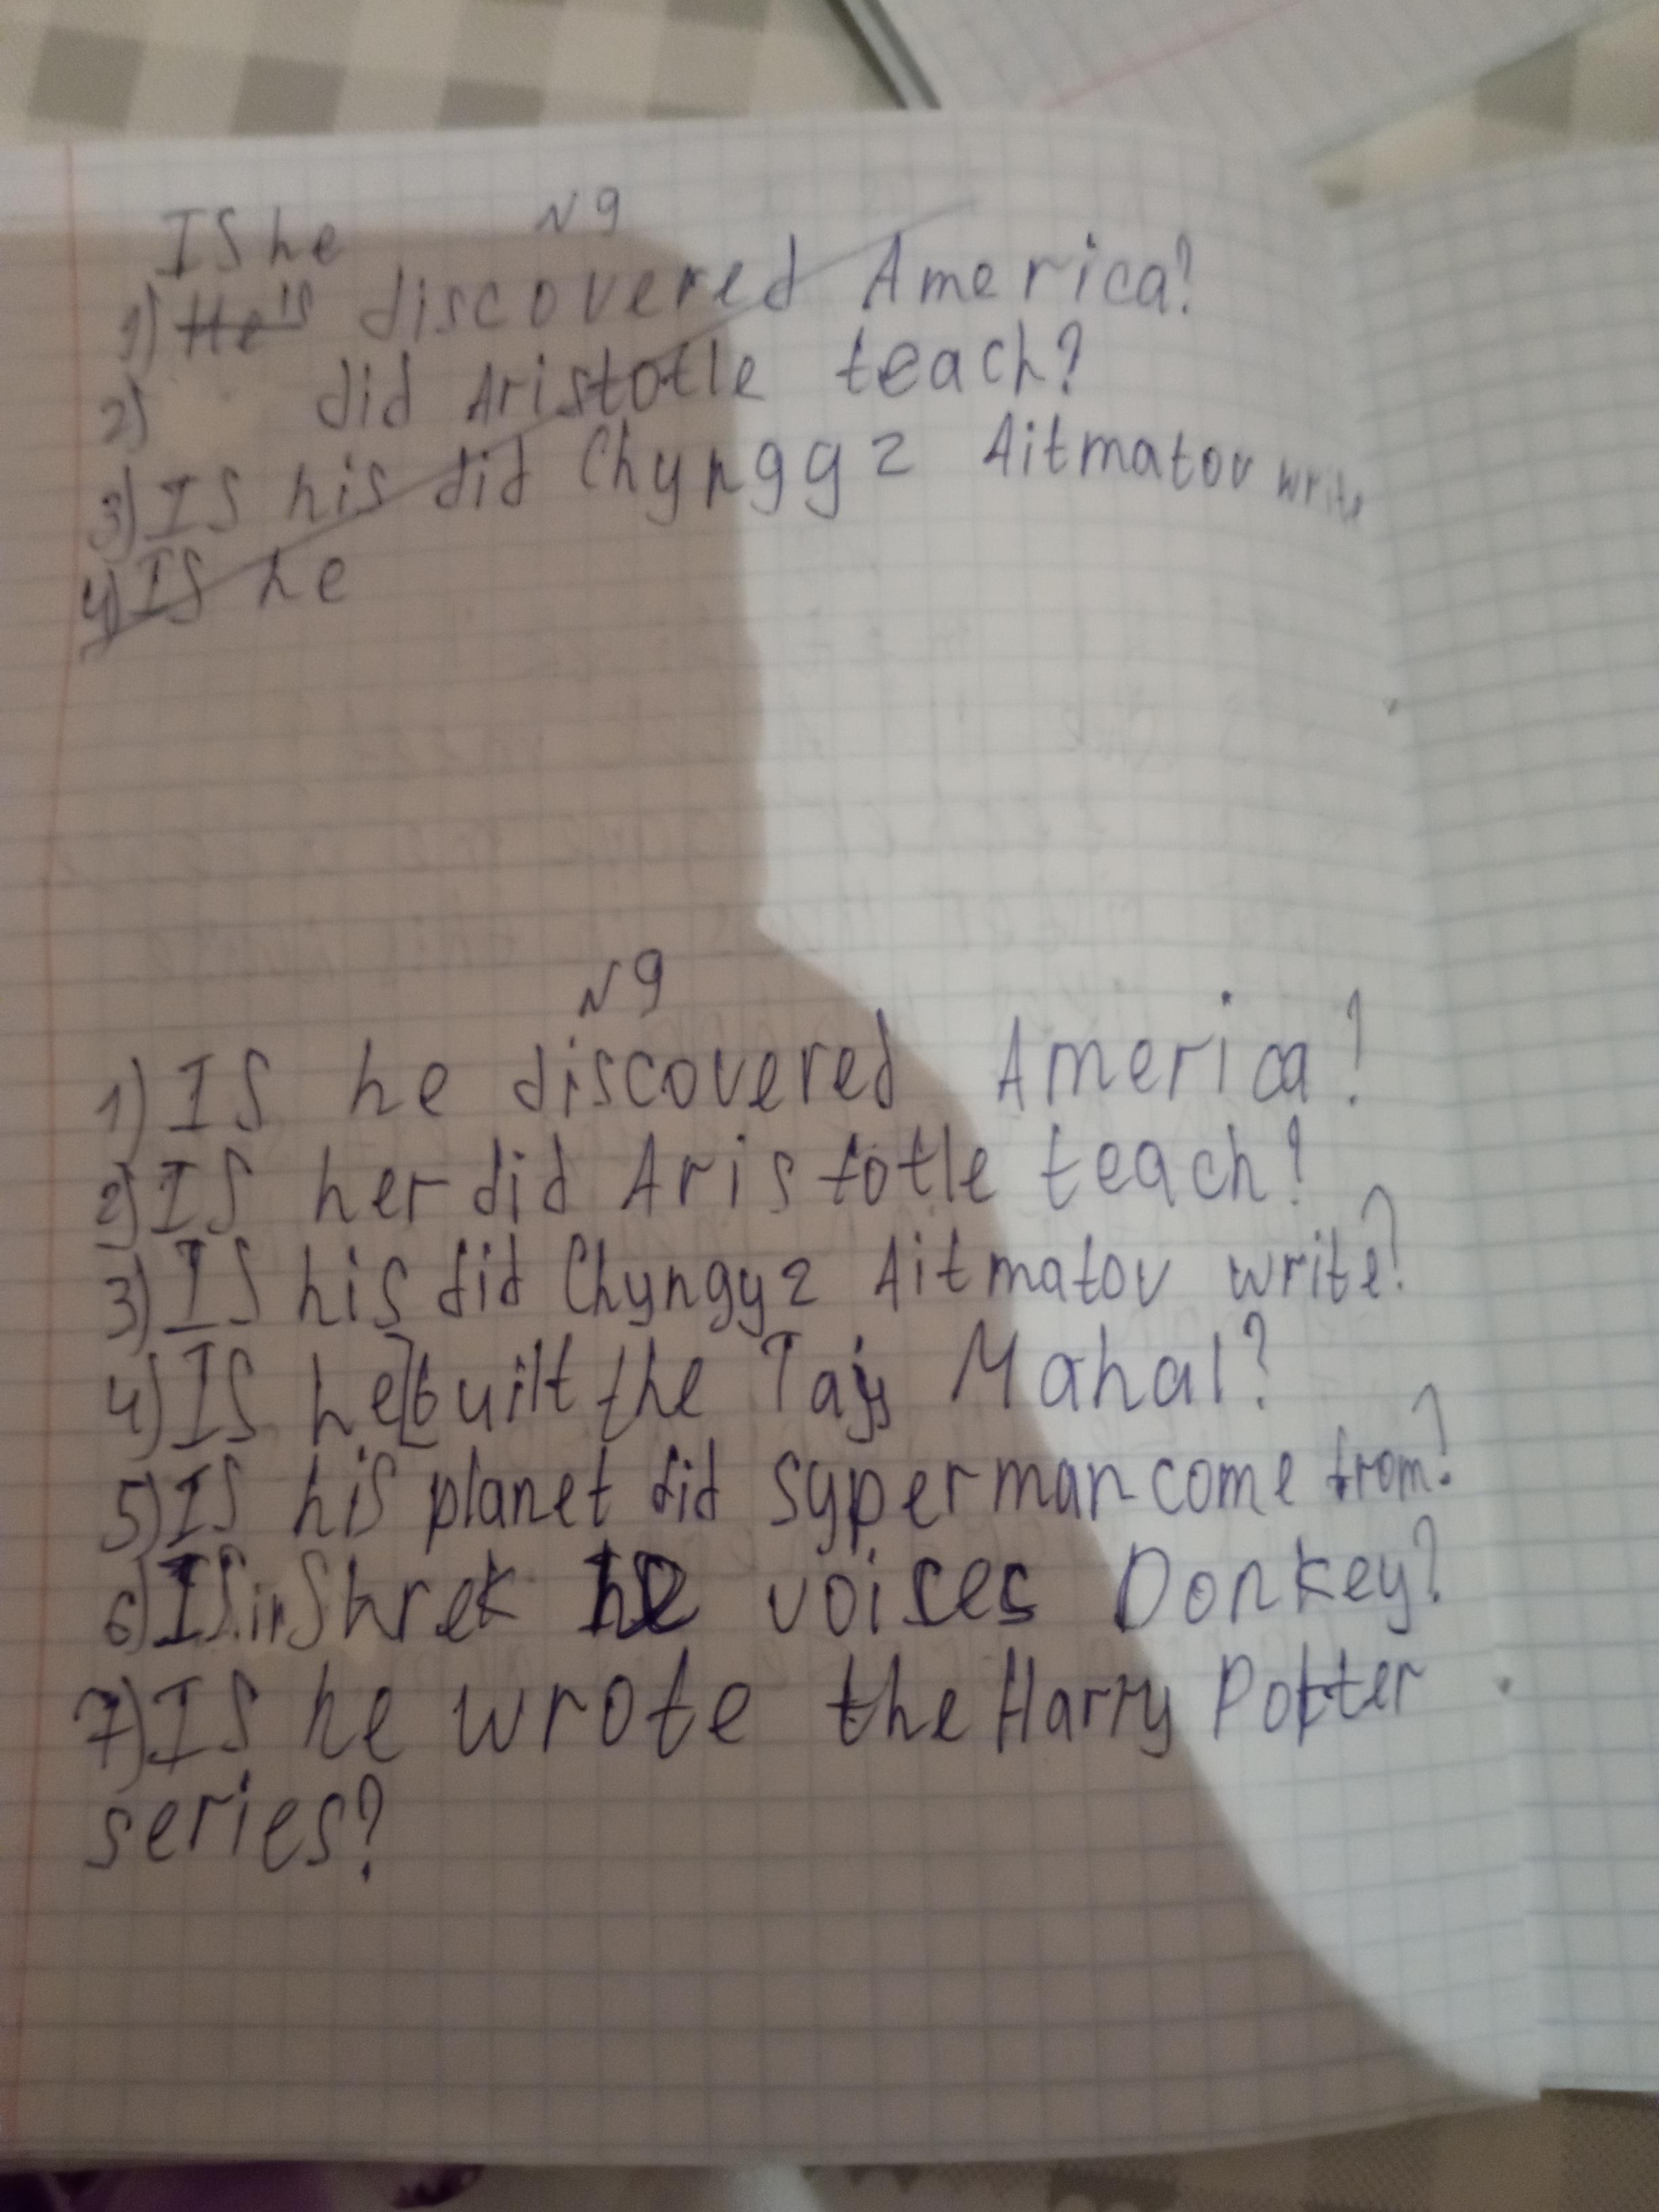 IS he
N9
1) He is discovered America?
2) did Aristotle teach?
3) IS his did Chyngyz Aitmatov write
4) IS he
N9
1) IS he discovered America?
2) IS her did Aristotle teach?
3) IS his did Chyngyz Aitmatov write?
4) IS he built the Taj Mahal?
5) IS his planet did Syperman come from?
6) IS in Shrek he voices Donkey?
7) IS he wrote the Harry Potter
series?